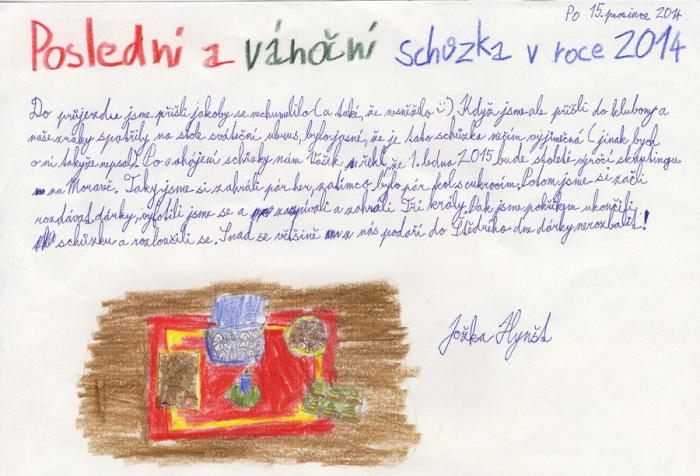 Po 15. prosince 2014
Poslední a vánoční schůzka v roce 2014
Do průjezdu jsme přišli jakoby se nechumelilo (a také, že nesněžilo :-)). Když jsme ale přišli do klubovny a
naše zraky spatřily na stole sváteční ubrus, bylo jasné, že je tato schůzka něčím výjimečná (jinak bych
o ní taky že nepsal). Po zahájení schůzky nám Vašek řekl, že 1. ledna 2015 bude stoleté výročí skautingu
na Moravě. Taky jsme si zahráli pár her, zatímco bylo pár kol s cukrovím. Potom jsme si začli
rozdávat dárky, vyfotili jsme se a zazpívali a zahráli Tři krály. Pak jsme pokřikem ukončili
schůzku a rozloučili se. Snad se většině z nás podaří do Štědrého dne dárky nerozbalit!
Jožka Hynšt